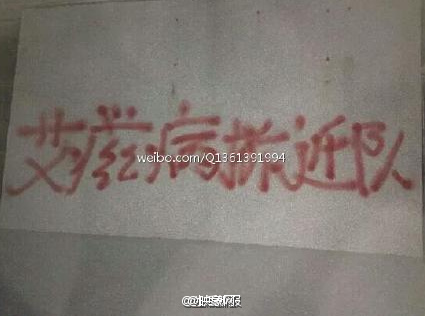 艾滋病拆迁队
weibo.com/Q1361391994